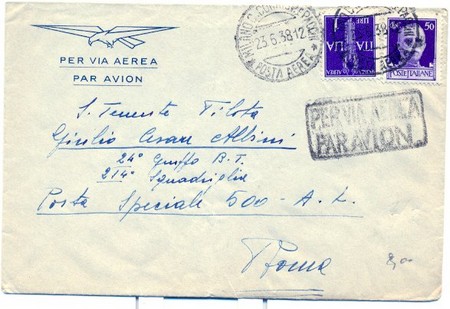 PER VIA AEREA
PAR AVION
23.6.38.12
POSTA AEREA
LIRE
ITALIA
50
POSTE ITALIANE
PER VIA AEREA
PAR AVION
S. Tenente Pilota
Giulio Cesare Albini
24° Gruppo B.T.
214° Squadriglia
Posta Speciale 500 - A.L.
Roma